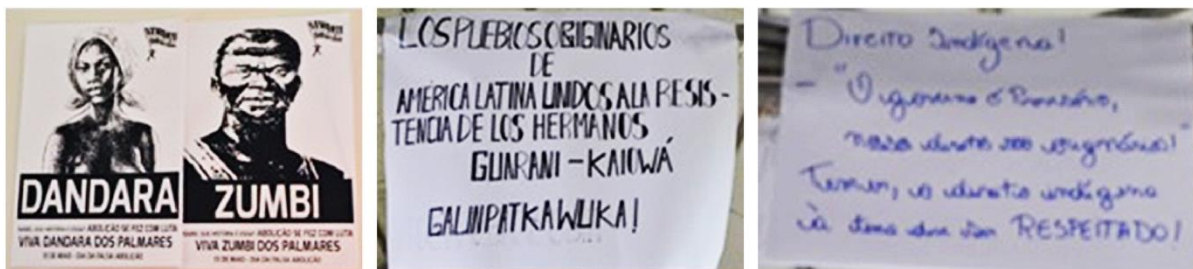 DANDARA
ABOLIÇÃO SE FEZ COM LUTA
VIVA DANDARA DOS PALMARES
13 DE MAIO - DIA DA FALSA ABOLIÇÃO
ZUMBI
ABOLIÇÃO SE FEZ COM LUTA
VIVA ZUMBI DOS PALMARES
13 DE MAIO - DIA DA FALSA ABOLIÇÃO
LOS PUEBLOS ORIGINARIOS
DE
AMÉRICA LATINA UNIDOS A LA RESIS-
TENCIA DE LOS HERMANOS
GUARANI - KAIOWÁ
Direito Indígena!
- "O governo é Provisório,
nosso direito originário!"
Temer, o direito indígena
à terra deve ser RESPEITADO!